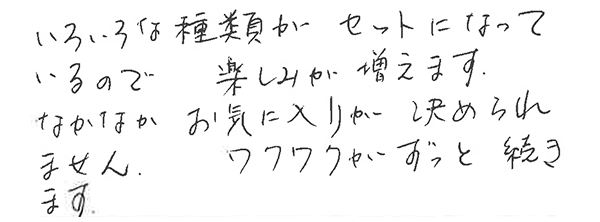 いろいろな種類が セットになって
いるので 楽しみが増えます.
なかなか お気に入りが 決められ
ません. ワクワクがずっと 続き
ます.